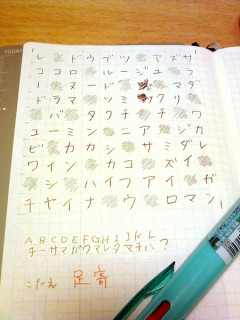 TODAY
レ ド ウ ブ ツ ア ズ サ
コ コ ロ ル ー ジ ュ ラ
ー ヌ ー ド マ ダ
ド ラ マ ツ ミ ク リ
バ タ ク チ チ ワ
ユ ー ミ ン ニ ア ジ カ
ビ カ カ シ サ ミ ダ レ
ワ イ ン カ コ ズ イ
シ ハ イ フ ア イ ガ
チ ャ イ ナ ウ ロ マ ン
A B C D E F G H I J K L
チーサマガウマレタマチハ?
こたえ 足寄